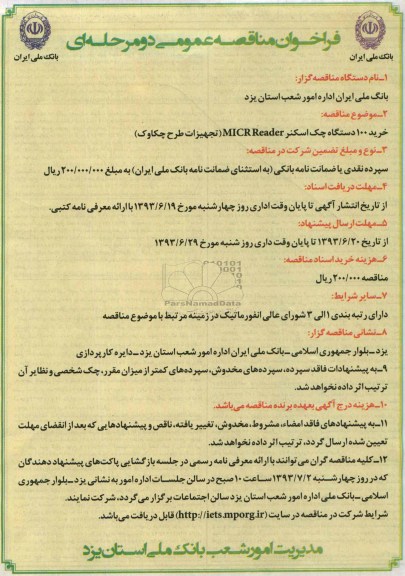 فراخوان مناقصه عمومی دومرحله‌ای
بانک ملی ایران
بانک ملی ایران
۱ـ نام دستگاه مناقصه گزار:
بانگ ملی ایران اداره امور شعب استان یزد
۲ـ موضوع مناقصه:
خرید ۱۰۰ دستگاه چک اسکنر MICR Reader (تجهیزات طرح چکاوک)
۳ـ نوع و مبلغ تضمین شرکت در مناقصه:
سپرده نقدی یا ضمانت نامه بانکی (به استثنای ضمانت نامه بانک ملی ایران) به مبلغ ۲۰۰/۰۰۰/۰۰۰ ریال
۴ـ مهلت دریافت اسناد:
از تاریخ انتشار آگهی تا پایان وقت اداری روز چهارشنبه مورخ ۱۳۹۳/۶/۱۹ با ارائه معرفی نامه کتبی.
۵ـ مهلت ارسال پیشنهاد:
از تاریخ ۱۳۹۳/۶/۲۰ تا پایان وقت داری روز شنبه مورخ ۱۳۹۳/۶/۲۹
۶ـ هزینه خرید اسناد مناقصه:
مناقصه ۲۰۰/۰۰۰ ریال
ParsNamadData
۷ـ سایر شرایط:
دارای رتبه بندی ۱ الی ۳ شورای عالی انفورماتیک در زمینه مرتبط با موضوع مناقصه
۸ـ نشانی مناقصه گزار:
یزد ـ بلوار جمهوری اسلامی ـ بانک ملی ایران اداره امور شعب استان یزد ـ دایره کارپردازی
۹ـ به پیشنهادات فاقد سپرده، سپرده‌های مخدوش، سپرده‌های کمتر از میزان مقرر، چک شخصی و نظایر آن
ترتیب اثر داده نخواهد شد.
۱۰ـ هزینه درج آگهی بعهده برنده مناقصه می‌باشد.
۱۱ـ به پیشنهادهای فاقد امضاء، مشروط، مخدوش، تغییر یافته، ناقص و پیشنهادهایی که بعد از انقضای مهلت
تعیین شده ارسال گردد، ترتیب اثر داده نخواهد شد.
۱۲ـ کلیه مناقصه گران می‌توانند با ارائه معرفی نامه رسمی در جلسه بازگشایی پاکت‌های پیشنهاد دهندگان
که در روز چهارشنبه ۱۳۹۳/۷/۲ ساعت ۱۰ صبح در سالن جلسات اداره امور به نشانی یزد ـ بلوار جمهوری
اسلامی ـ بانک ملی اداره امور شعب استان یزد سالن اجتماعات برگزار می‌گردد، شرکت نمایند.
شرایط شرکت در مناقصه در سایت (http://iets.mporg.ir) قابل دریافت می‌باشد.
مدیریت امور شعب بانک ملی استان یزد